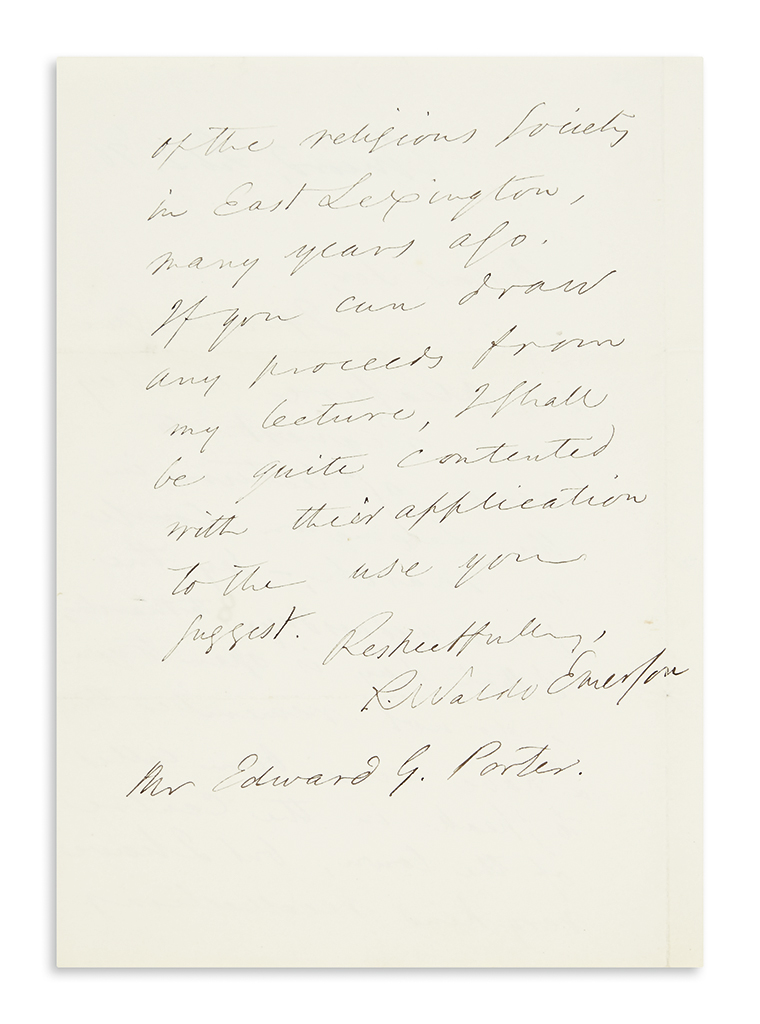 of the religious Society
in East Lexington,
many years ago.
If you can draw
any proceeds from
my lecture, I shall
be quite contented
with their application
to the use you
suggest.
Respectfully,
R. Waldo Emerson
Mr Edward G. Porter.